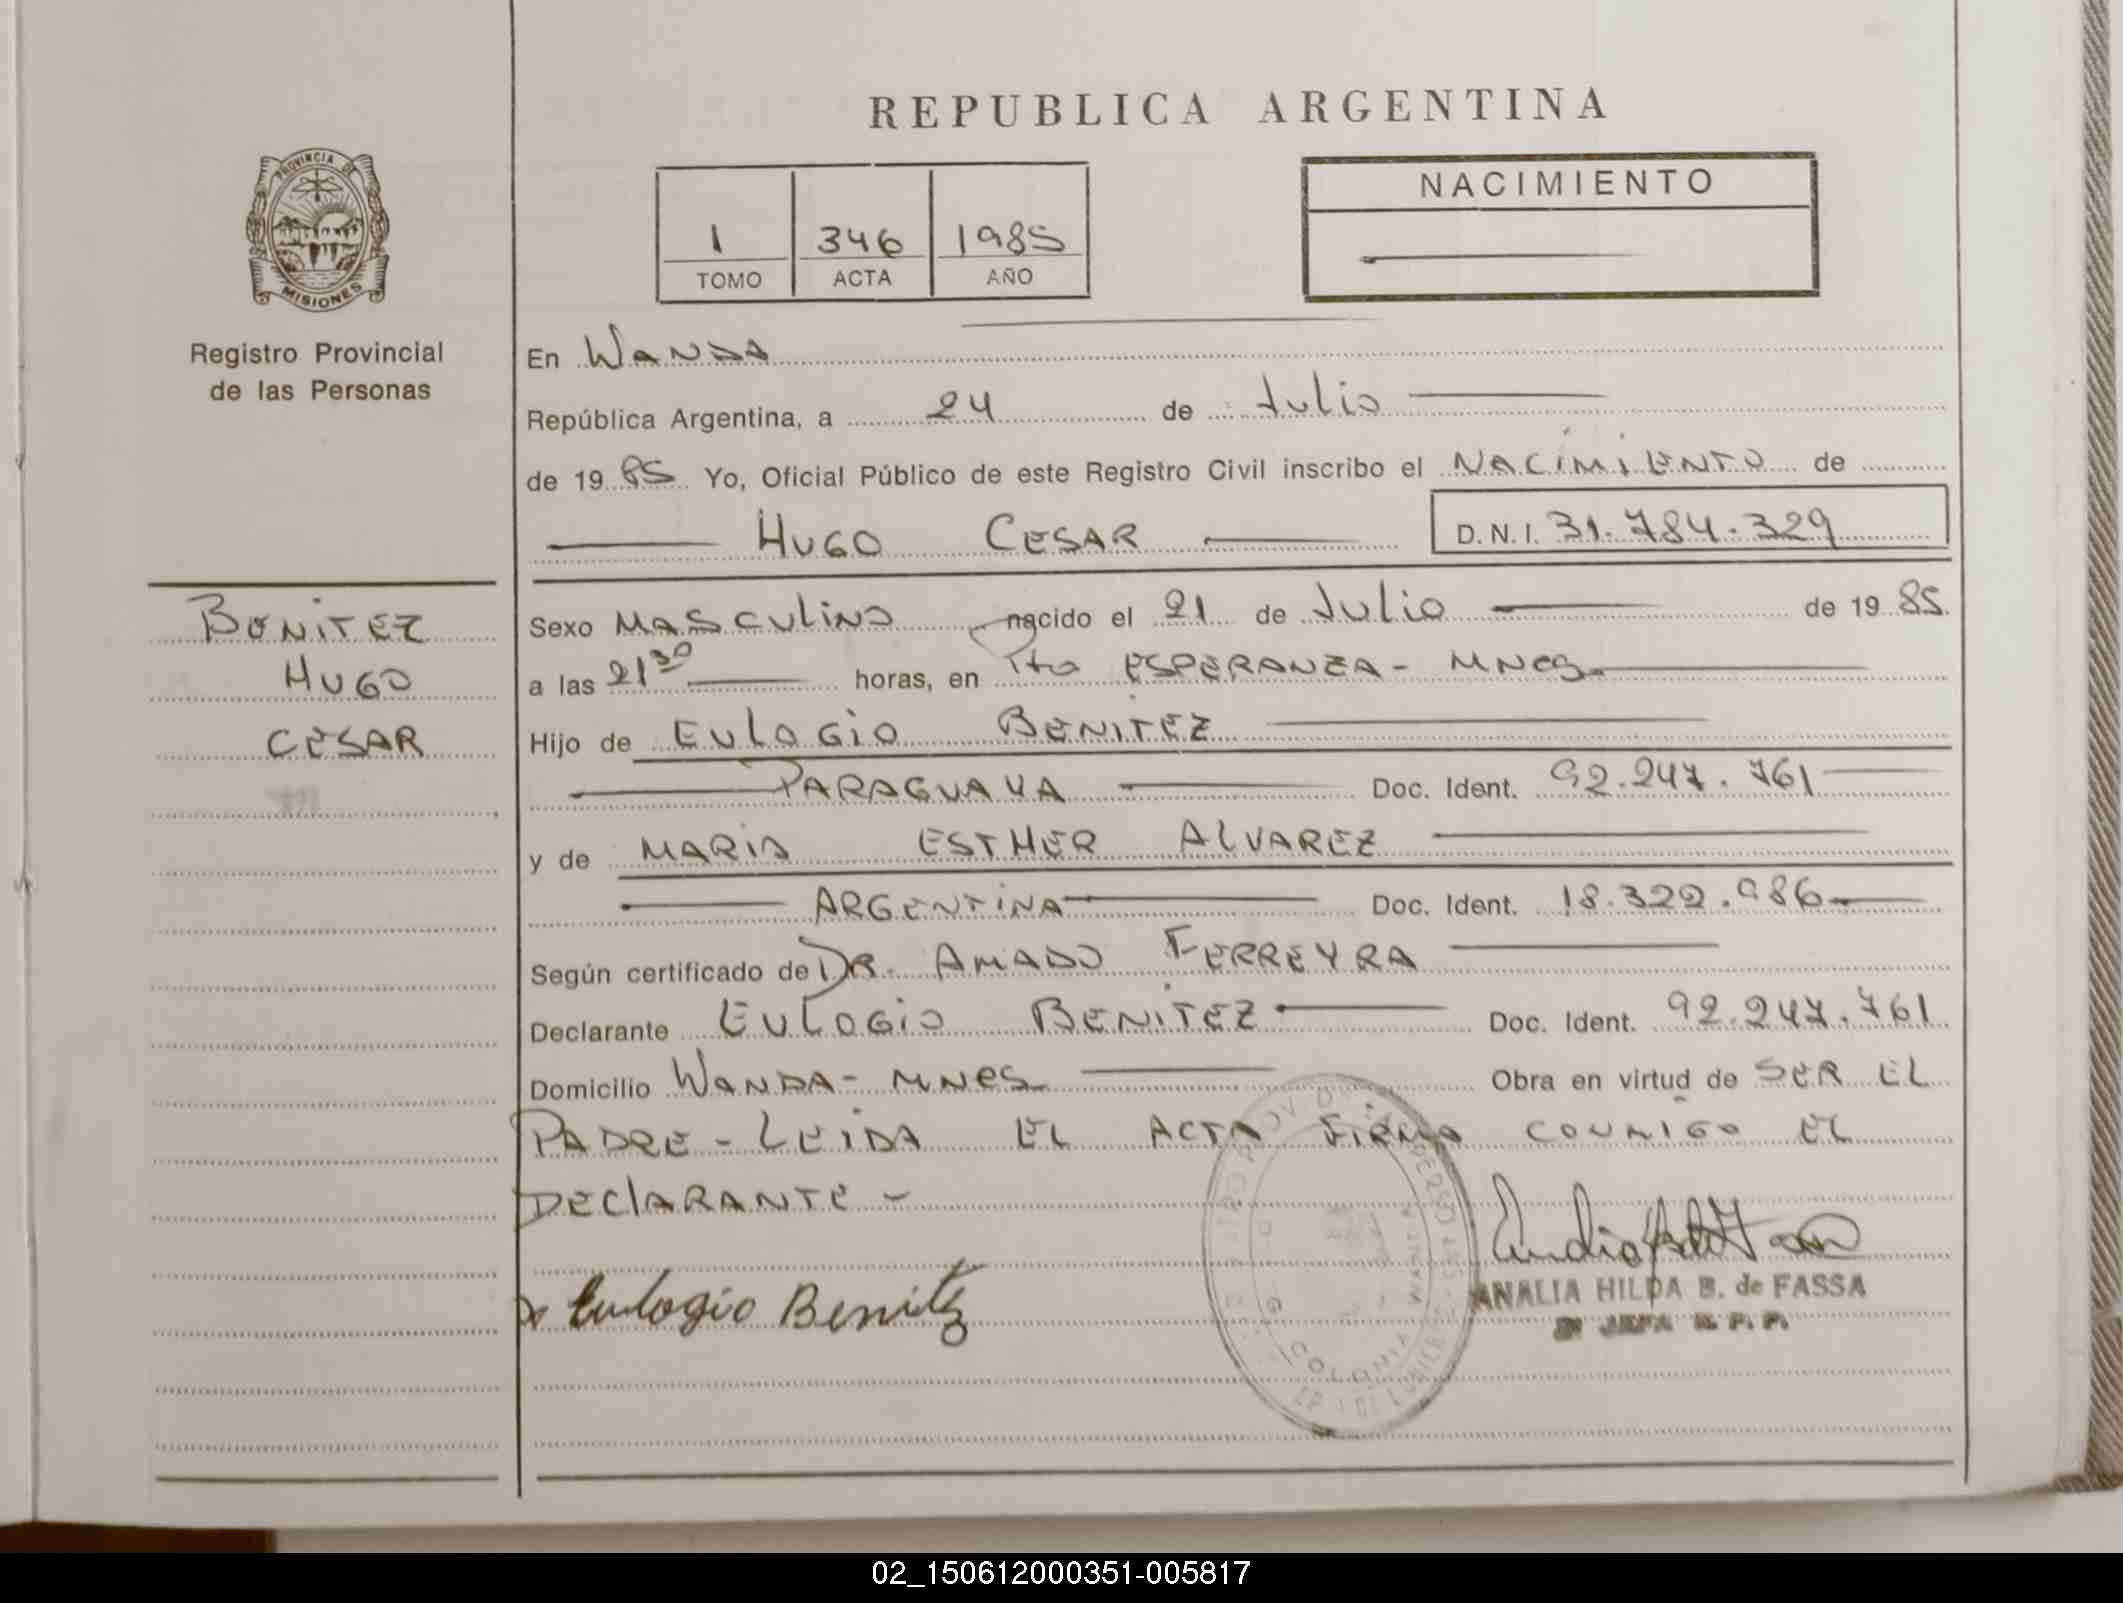 REPUBLICA ARGENTINA
PROVINCIA DE
MISIONES
Registro Provincial
de las Personas
1 346 1985
TOMO ACTA AÑO
NACIMIENTO
En WANDA
República Argentina, a 24 de Julio
de 1985 Yo, Oficial Público de este Registro Civil inscribo el NACIMIENTO de
HUGO CESAR D.N.I. 31.784.329
BENITEZ
HUGO
CESAR
Sexo MASCULINO nacido el 21 de Julio de 1985.
a las 21 30 horas, en Pto ESPERANZA - MNES
Hijo de EULOGIO BENITEZ
PARAGUAYA Doc. Ident. 92.247.761
y de MARIA ESTHER ALVAREZ
ARGENTINA Doc. Ident. 18.322.986
Según certificado de DR. AMADO FERREYRA
Declarante EULOGIO BENITEZ Doc. Ident. 92.247.761
Domicilio WANDA - MNES Obra en virtud de SER EL
PADRE - LEIDA EL ACTA FIRMA CONMIGO EL
DECLARANTE -
Eulogio Benitez
ANALIA HILDA B. de FASSA
JEFA R. P. P.
COLONIA
WANDA
02_150612000351-005817